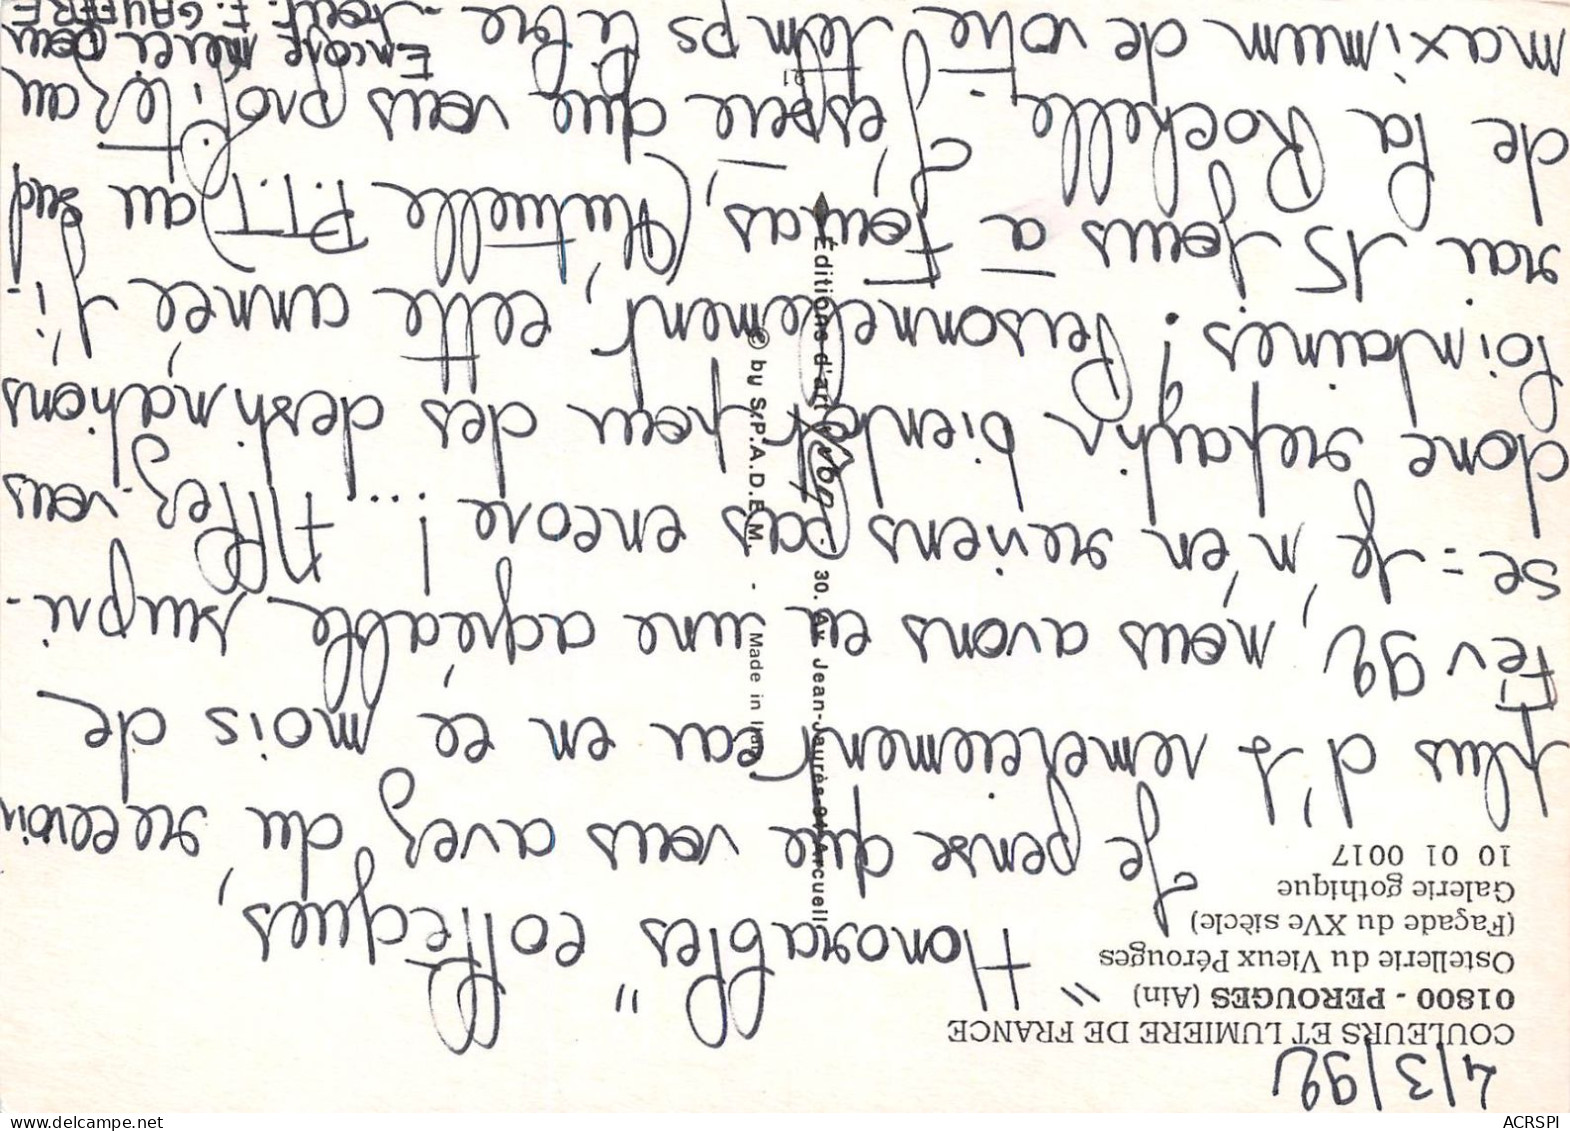 4/3/92
COULEURS ET LUMIERE DE FRANCE
01800 - PEROUGES (Ain)
Ostellerie du Vieux Pérouges
(Façade du XVe siècle)
Galerie gothique
10 01 0017
" Honorables " collègues,
Je pense que vous avez du recevoir
plus d'1 remerciement car en ce mois de
Fév 92, nous avons eu une agréable surpri-
se = Je n'en reviens pas encore !... Allez-vous
donc repartir bientôt pour des destinations
lointaines ! Personnellement, cette année j'i-
rai 15 jours à Fouras, (Mutuelle P.T.T) au sud
de la Rochelle. J'espère que vous profitez au
maximum de votre temps libre -
Encore merci pour
F. GAUFERE
Éditions d'art Yvon - 30. Av. Jean-Jaurès-94 Arcueil
© by S.P.A.D.E.M. - Made in
ACRSPI